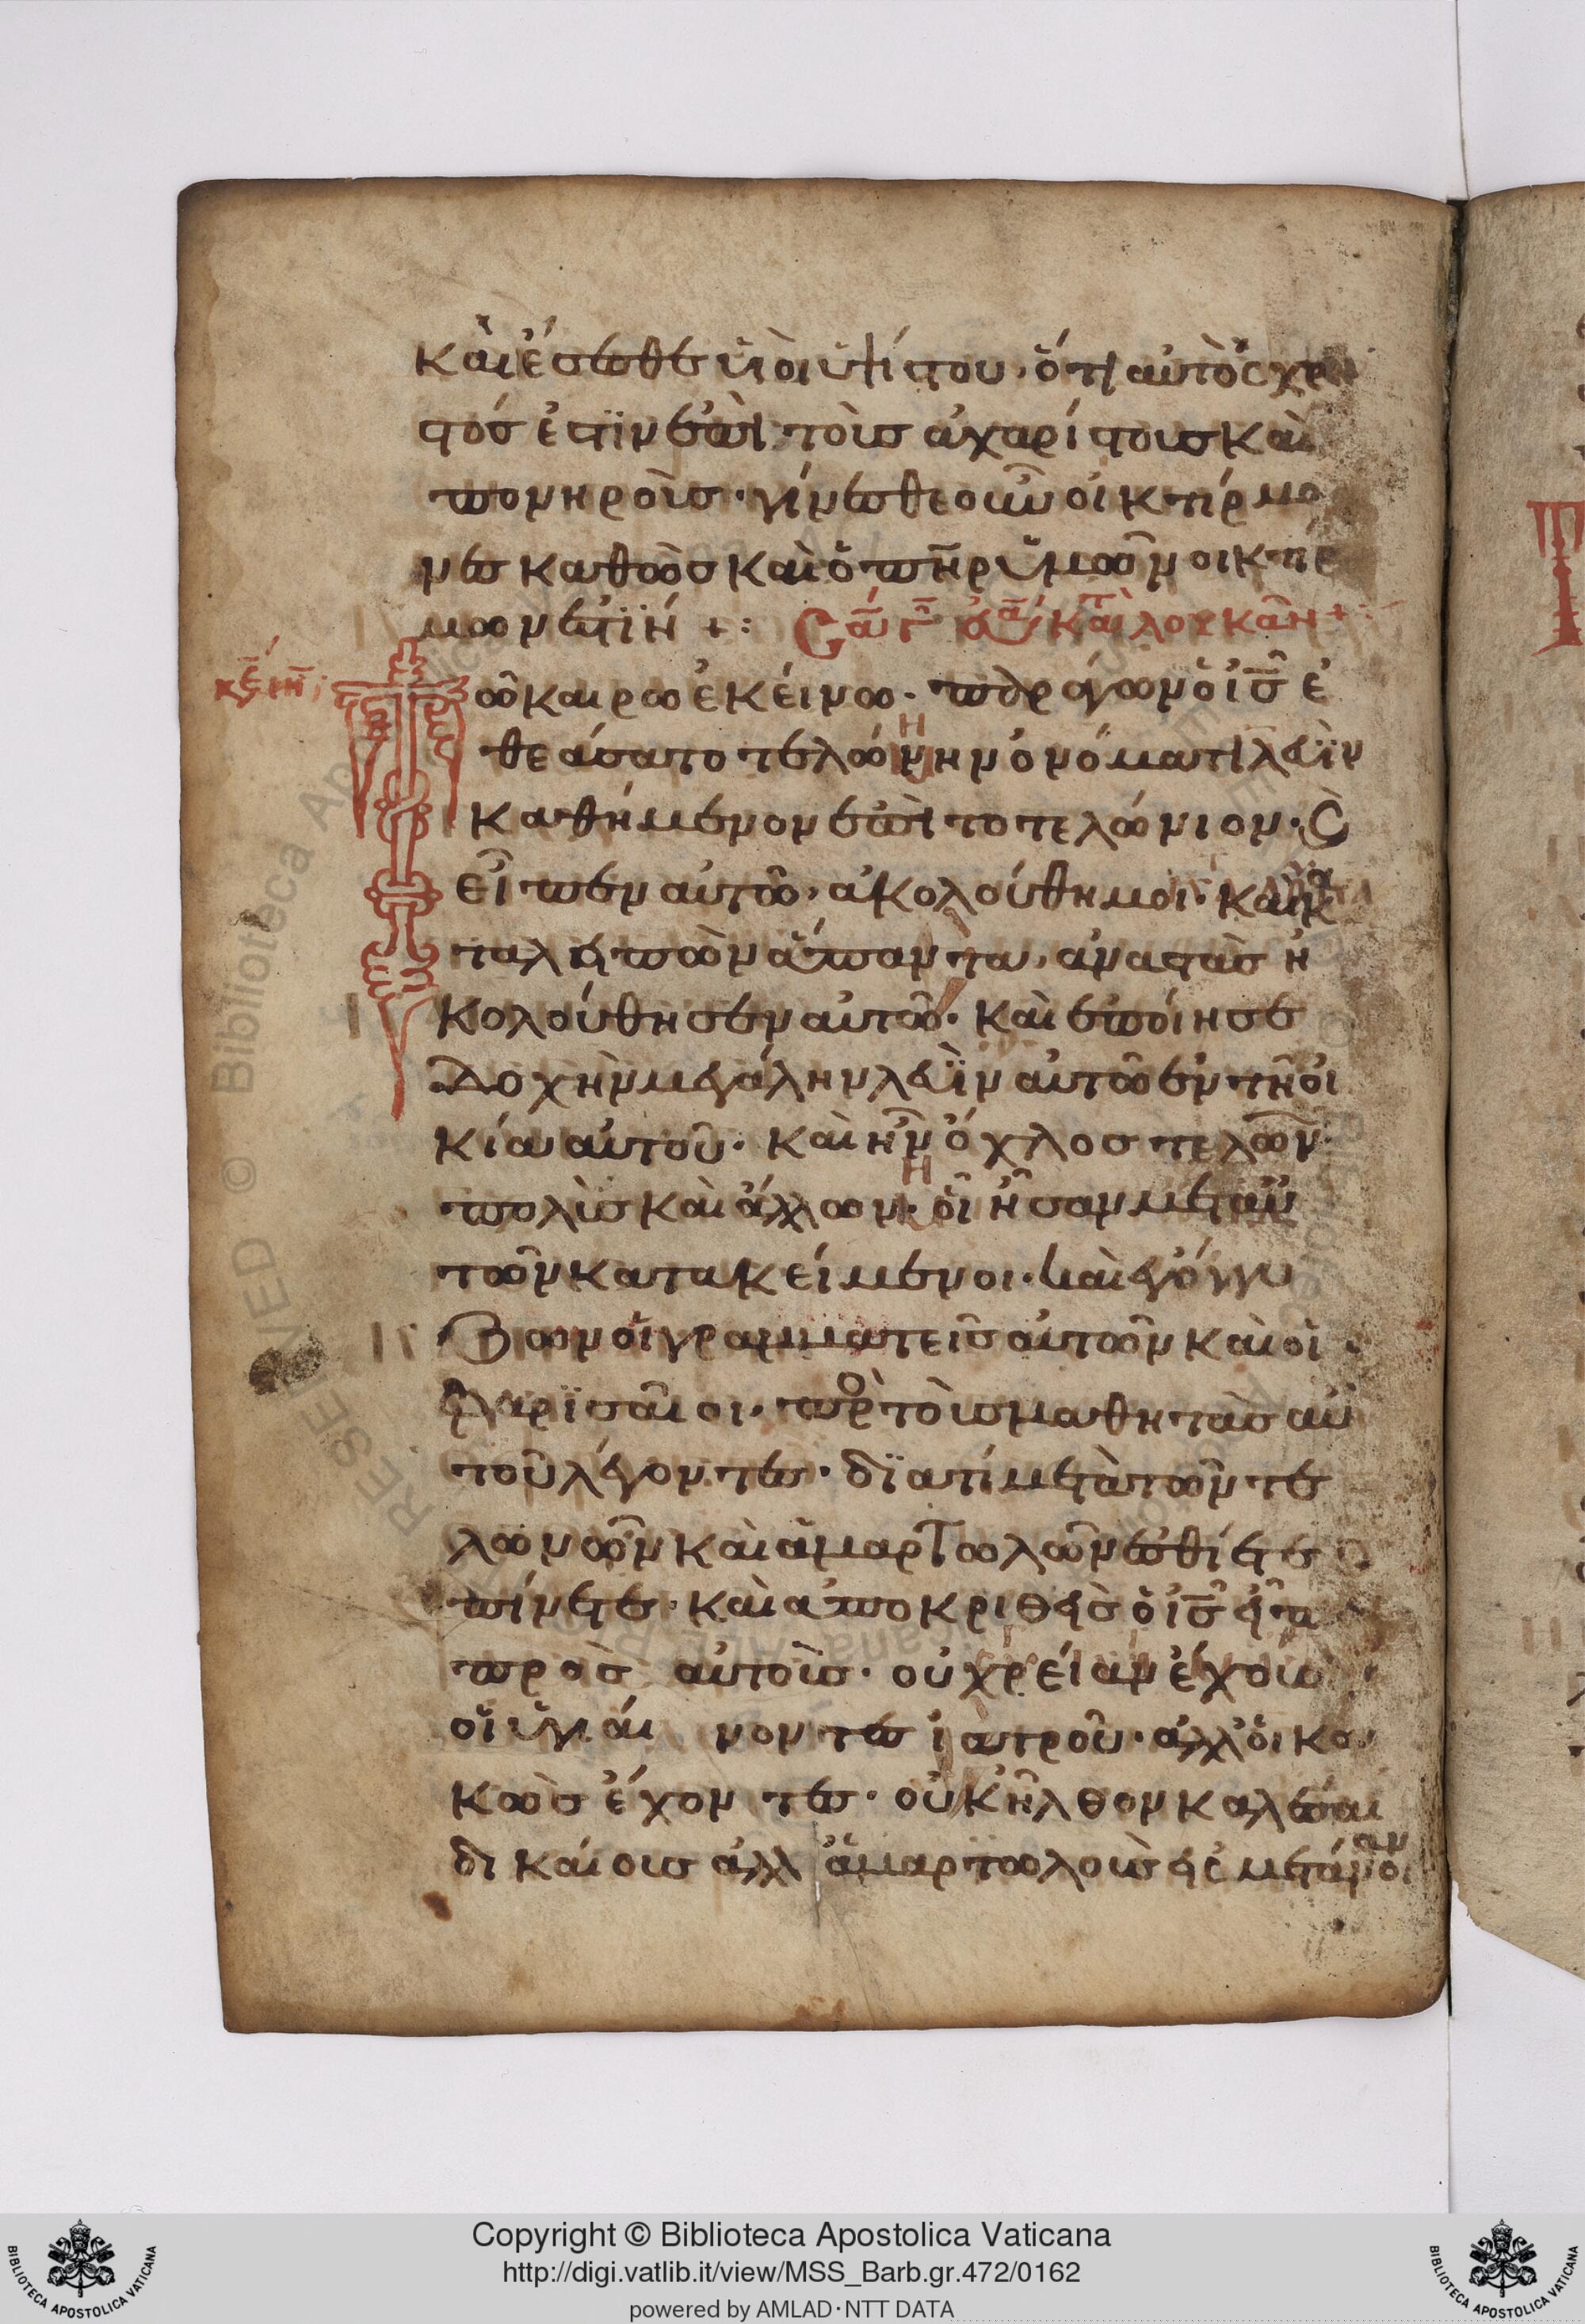 καὶ ἔσεσθε ὑιοὶ ὑψίστου· ὅτι αὐτὸς χρη
στός ἐστϊν ἐπὶ τοὶς ἀχαρίστους καὶ
πονηροὶς· γίνεσθε οὖν οἰκτίρμο
νες καθὼς καὶ ὁ π̅η̅ρ ὑμῶν οικτίρ
μων ἐστϊν +: Σα γ̅ κατὰ λουκᾶν +:
κε̅ φ ιη̅
Τῶ καιρω ἐκείνω· παράγων ὁ ι̅ς̅ ἐ
θεάσατο τελώνην ὀνόματι λευῒν
καθήμενον ἐπὶ το τελώνιον· Καὶ
εἶπεν αὐτῶ, ἀκολούθη μοι· καὶ κα
ταληπὼν ἅπαντα, ἀναστὰς ἠ
κολούθησεν αὐτῶ· καὶ ἐποίησε
δοχὴν μεγάλην λευῒν αὐτῶ ἐν τῆ οἰ
κία αὐτοῦ· καὶ ἦν ὄχλος τελωῶν
πολὶς καὶ ἄλλων· οἳ ἦσαν μετ αὐ
τῶν κατακείμενοι· καὶ ἐγόγγυ
ζων οἱ γραμματεῖς αὐτῶν καὶ οἱ
φαρϊσαῖοι· πρὸ τοὶς μαθητὰς αὐ
τοῦ λέγοντες· δϊατί μετὰ τῶν τε
λωνῶν καὶ ἁμαρτωλῶν ἐσθίετε
πίνετε· καὶ ἀποκριθεὶς ὁ ι̅ς̅ εἶπε
πρὸς αὐτοὶς· οὐ χρείαν ἔχουσι
οἱ ὑγιαί νοντες ἰατροῦ· ἀλλ' οἱ κα
κῶς ἔχοντες· οὐκ ἦλθον καλέσαι
δικαίους ἀλλ ἁμαρτωλοὺς εἰς μετάνοιαν
Copyright © Biblioteca Apostolica Vaticana
http://digi.vatlib.it/view/MSS_Barb.gr.472/0162
powered by AMLAD·NTT DATA